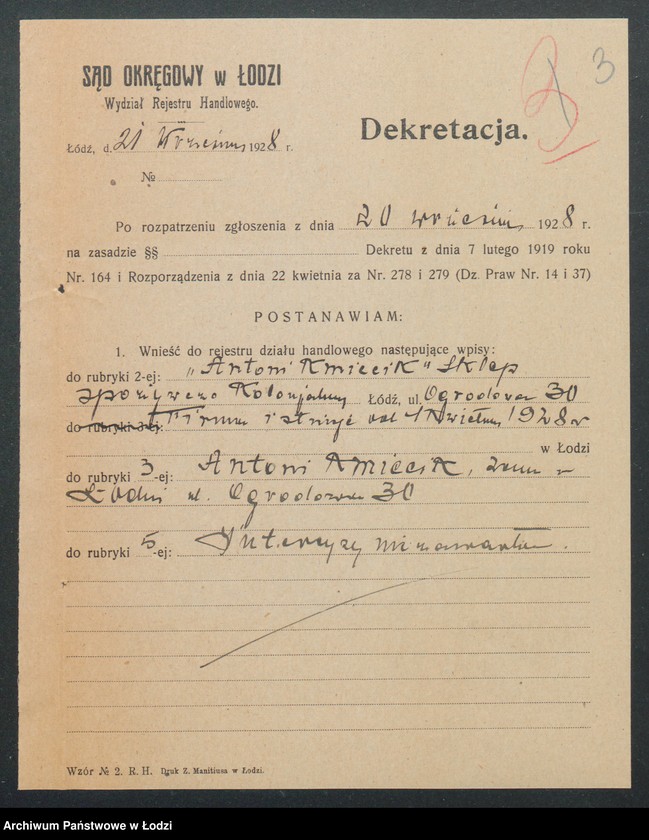 3
SĄD OKRĘGOWY w ŁODZI
Wydział Rejestru Handlowego.
Łódź, d. 21 Września 1928 r.
№
Dekretacja.
Po rozpatrzeniu zgłoszenia z dnia 20 września 1928 r.
na zasadzie §§ Dekretu z dnia 7 lutego 1919 roku
Nr. 164 i Rozporządzenia z dnia 22 kwietnia za Nr. 278 i 279 (Dz. Praw Nr. 14 i 37)
POSTANAWIAM:
1. Wnieść do rejestru działu handlowego następujące wpisy:
do rubryki 2-ej: „Antoni Kmiecik" Sklep
spożywczo Kolonjalny Łódź, ul. Ogrodowa 30
do rubryki 3-ej: Firma istnieje od 1 Kwietnia 1928 r
w Łodzi
do rubryki 3-ej: Antoni Kmiecik, zam w
Łodzi ul. Ogrodowa 30
do rubryki 5-ej: Intercyzy nie zawarto.
Wzór № 2. R. H. Druk Z. Manitiusa w Łodzi.
Archiwum Państwowe w Łodzi